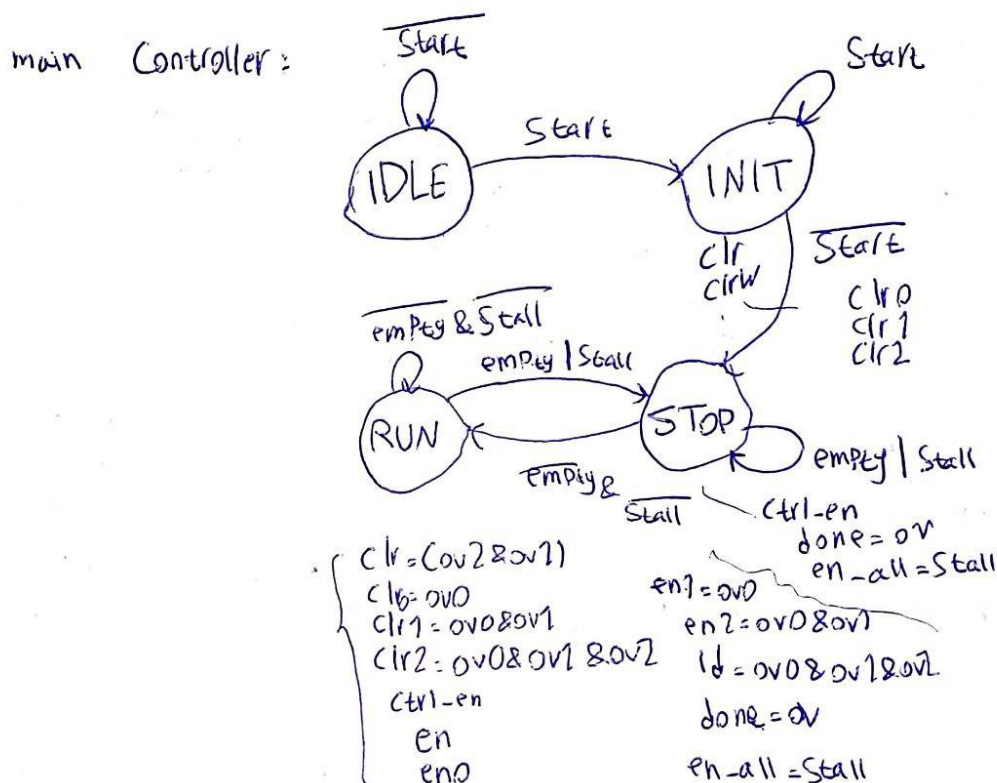 main Controller:
Start
Start
Start
IDLE
INIT
clr
clrW
Start
clr0
clr1
clr2
empty & Stall
empty | Stall
RUN
STOP
empty &
Stall
empty | Stall
ctrl-en
done = ov
en_all = Stall
clr = (ov2 & ov1)
clr0 = ov0
clr1 = ov0 & ov1
clr2 = ov0 & ov1 & ov2
ctrl-en
en
en0
en1 = ov0
en2 = ov0 & ov1
ld = ov0 & ov1 & ov2
done = ov
en_all = Stall